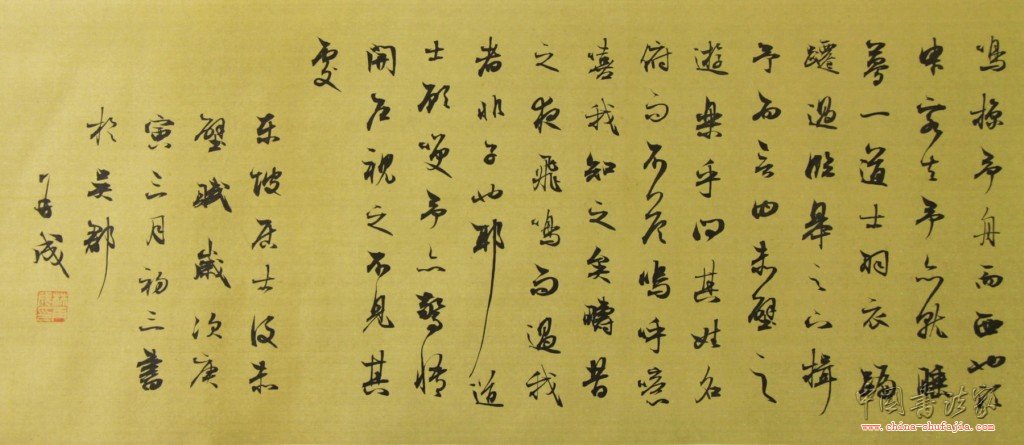 鳴掠予舟而西也須
臾客去予亦就睡
夢一道士羽衣蹁
躚過臨皋之下揖
予而言曰赤壁之
遊樂乎問其姓名
俯而不答嗚呼噫
嘻我知之矣疇昔
之夜飛鳴而過我
者非子也耶道
士顧笑予亦驚悟
開户視之不見其
處
東坡居士後赤
壁賦歲次庚
寅三月初三書
於吴郡
成
中国书法家
www.china-shufajia.com